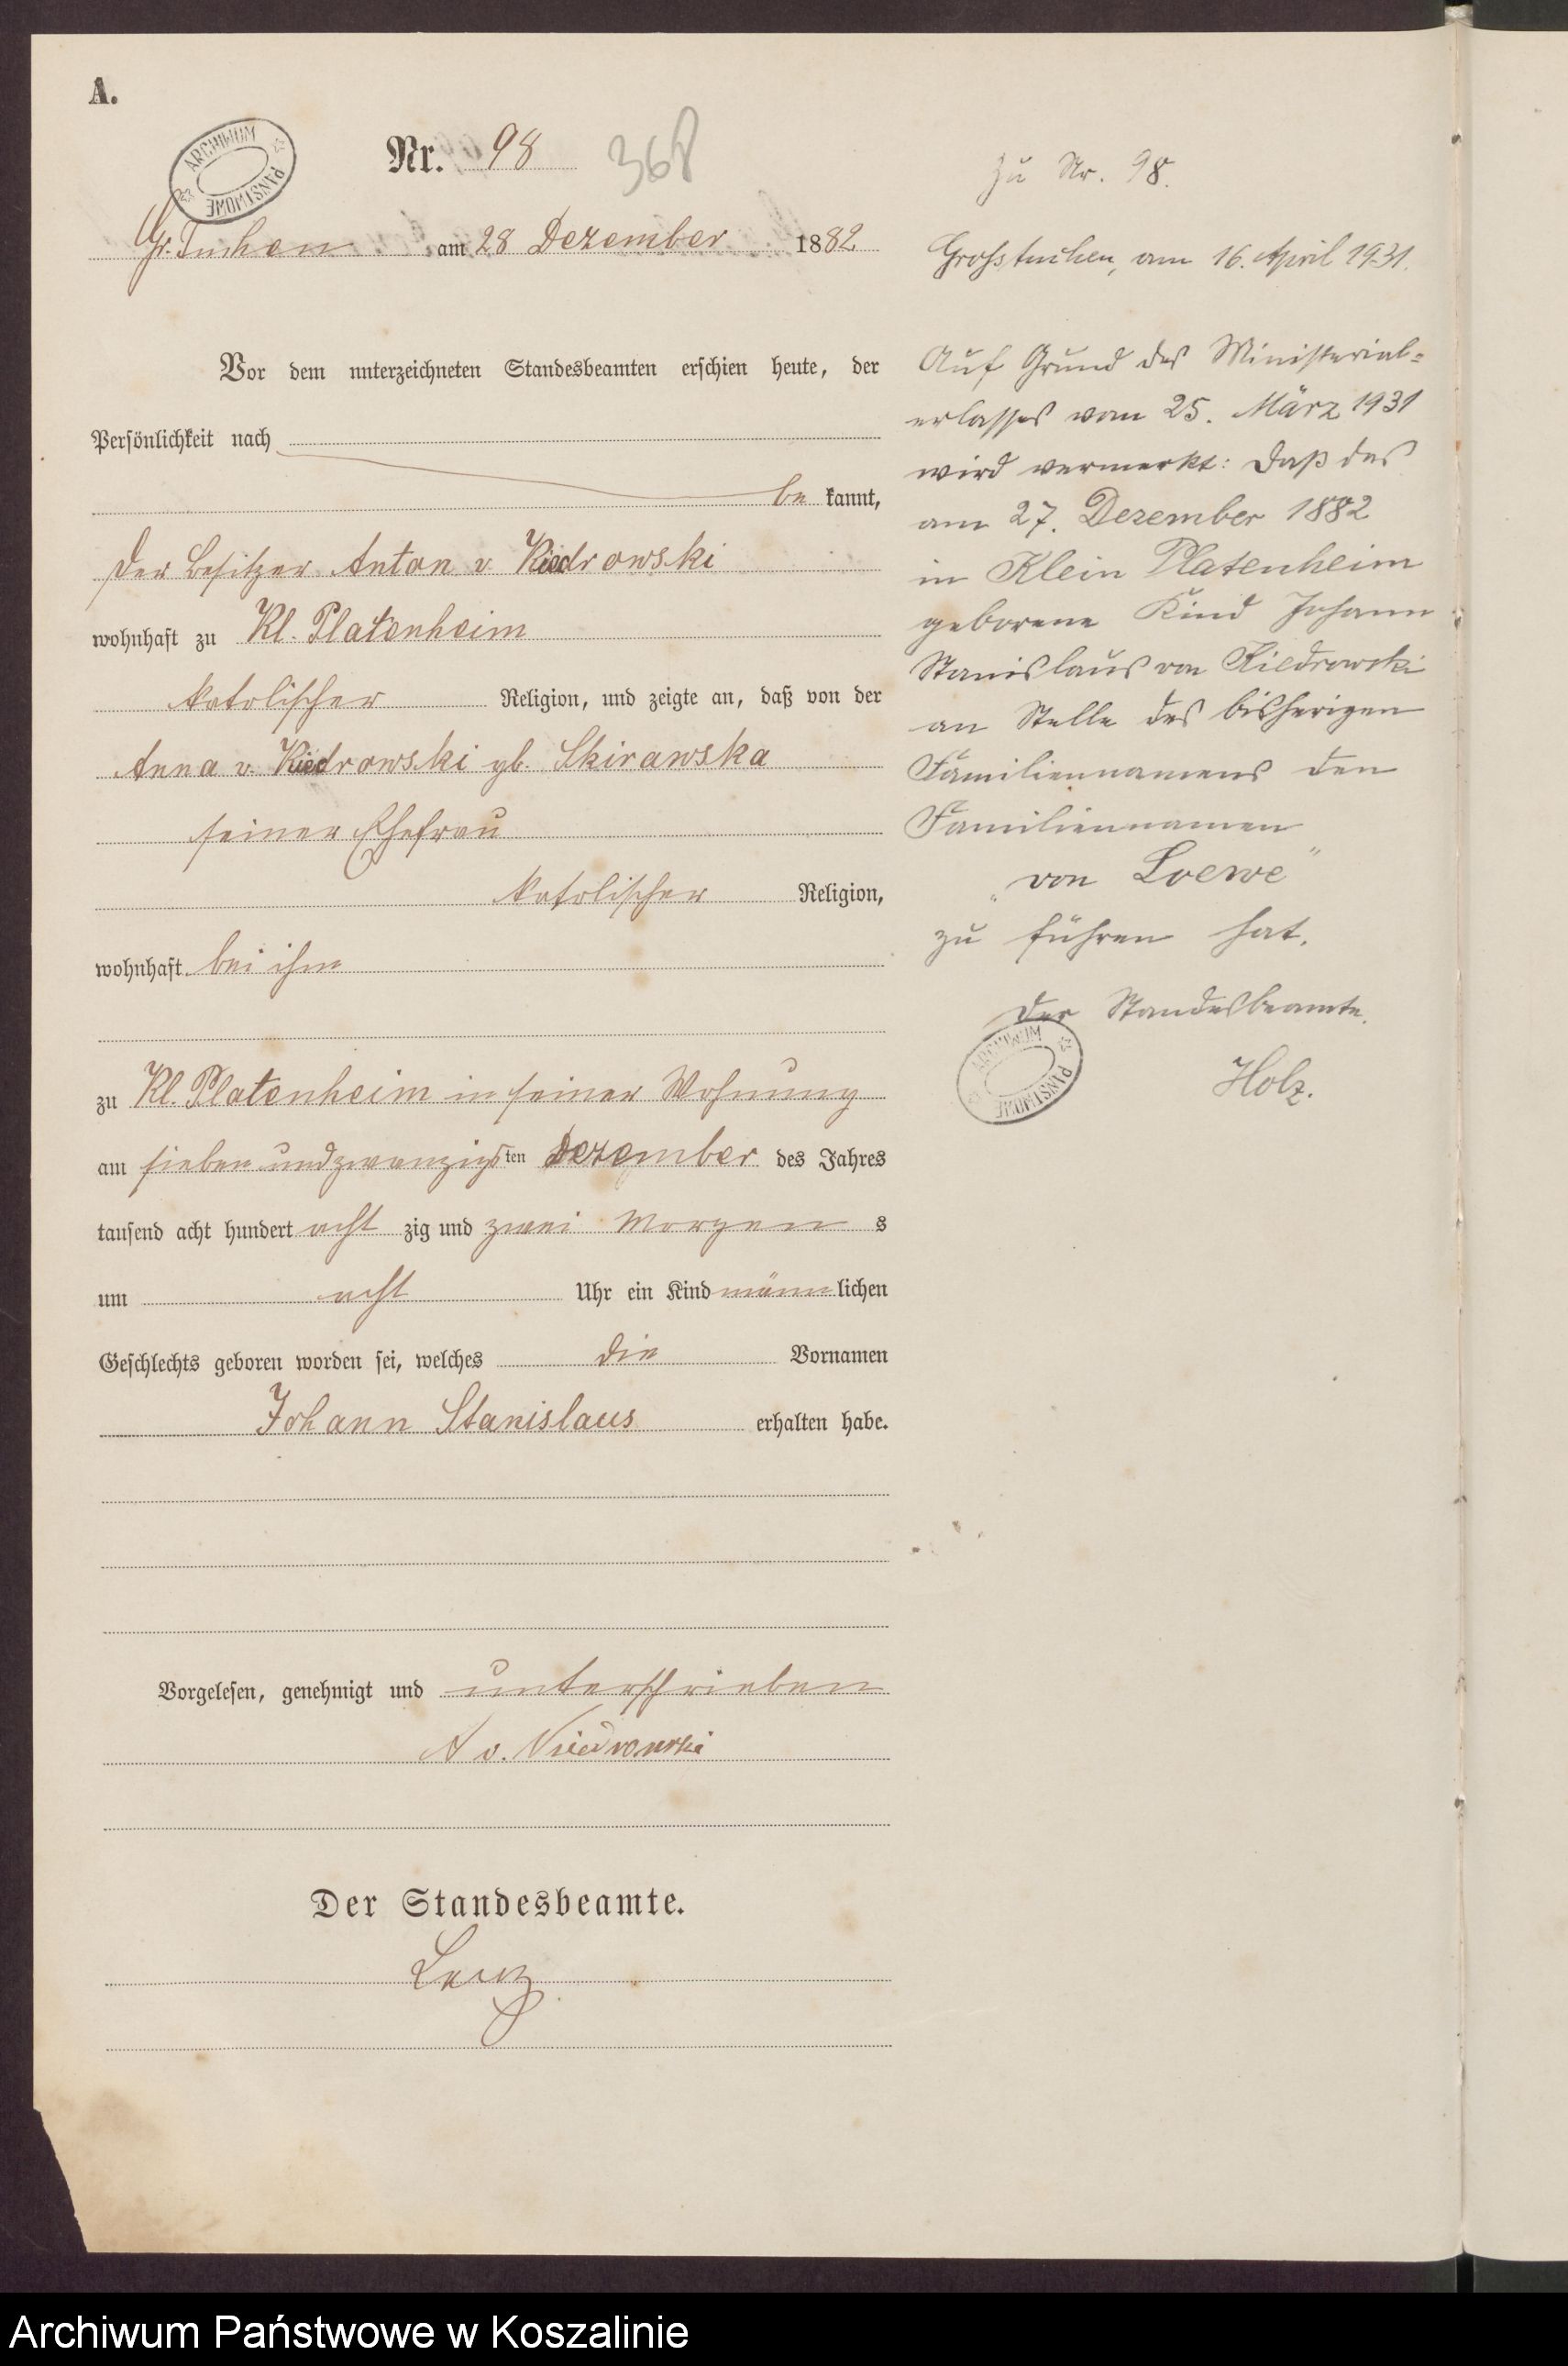 A.
ARCHIWUM PAŃSTWOWE
Nr. 98 368
Gr. Tuchen am 28 Dezember 1882
Vor dem unterzeichneten Standesbeamten erschien heute, der
Persönlichkeit nach
be kannt,
der Besitzer Anton v. Kiedrowski
wohnhaft zu Kl. Platenheim
katolischer Religion, und zeigte an, daß von der
Anna v. Kiedrowski gb. Skirawska
seiner Ehefrau
katolischer Religion,
wohnhaft bei ihm
zu Kl. Platenheim in seiner Wohnung
am sieben und zwanzigsten Dezember des Jahres
tausend acht hundert acht zig und zwei Morgens
um acht Uhr ein Kind männlichen
Geschlechts geboren worden sei, welches die Vornamen
Johann Stanislaus erhalten habe.
Vorgelesen, genehmigt und unterschrieben
A v. Kiedrowski
Der Standesbeamte.
Lenz
Zu Nr. 98.
Grosstuchen, am 16. April 1931.
Auf Grund des Ministerial-
erlasses vom 25. März 1931
wird vermerkt: daß das
am 27. Dezember 1882
in Klein Platenheim
geborene Kind Johann
Stanislaus von Kiedrowski
an Stelle des bisherigen
Familiennamens den
Familiennamen
„von Loewe"
zu führen hat.
Der Standesbeamte.
ARCHIWUM PAŃSTWOWE
Holz.
Archiwum Państwowe w Koszalinie